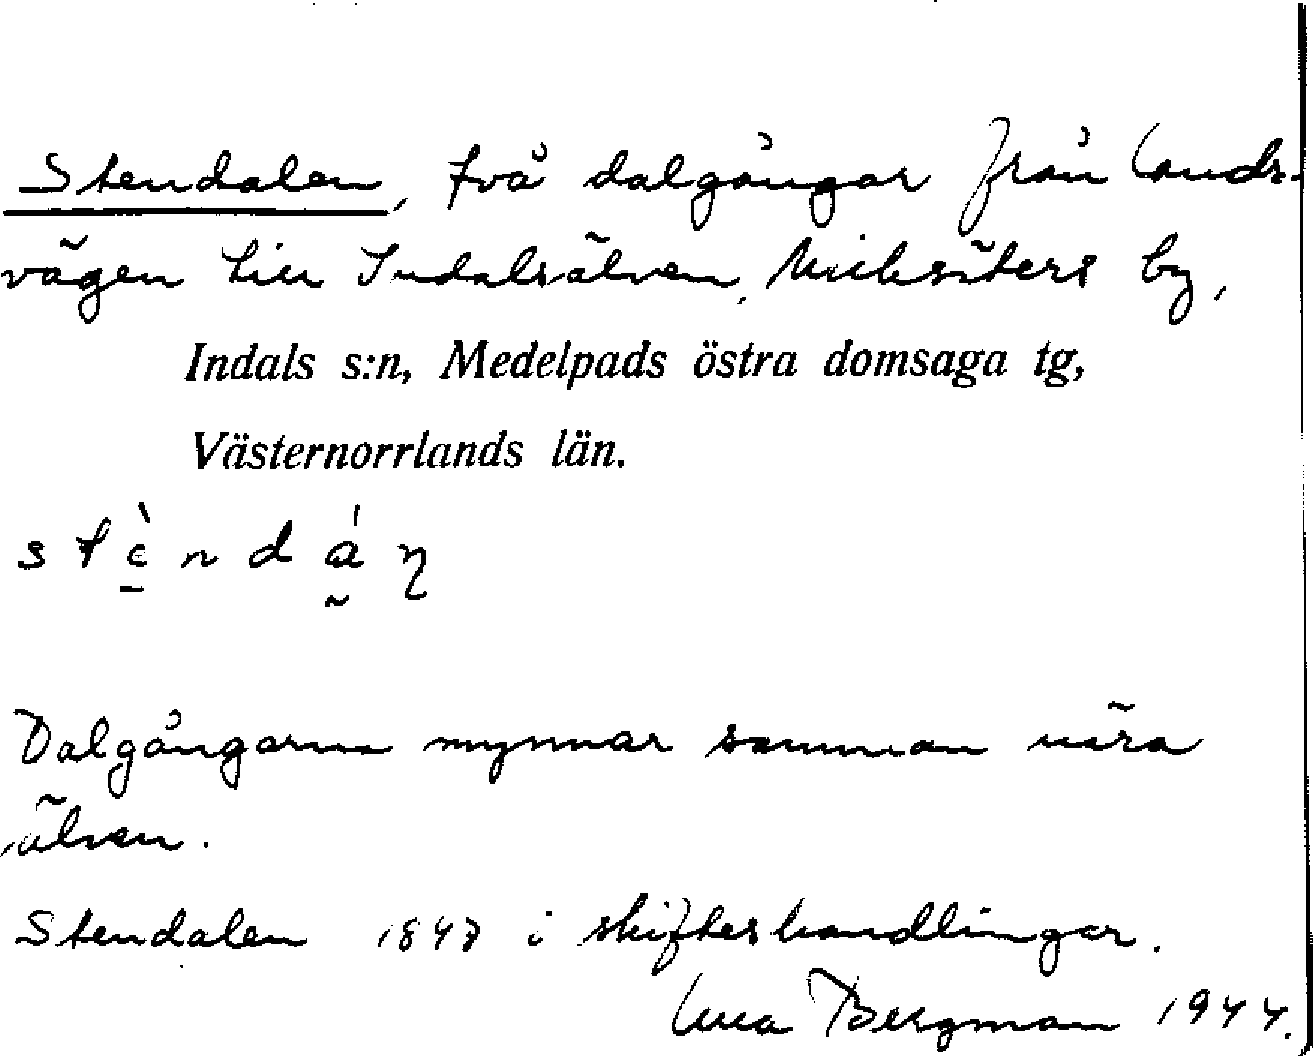 Stendalen, två dalgångar från lands-
vägen till Indalsälven, by,
Indals s:n, Medelpads östra domsaga tg,
Västernorrlands län.
Dalgångarna mynnar samman nära
älven.
Stendalen 1847 i skifteshandlingar.
Bergman 1944.